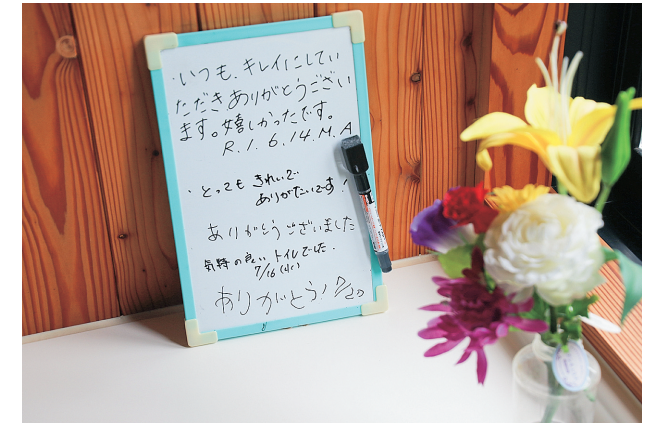 ・いつも、キレイにしてい
ただきありがとうござい
ます。嬉しかったです。
R.1.6.14.M.A
・とっても きれいで
ありがたいです!
ありがとうございました
気持の良い トイレでした.
7/16(火)
ありがとう! 7/20